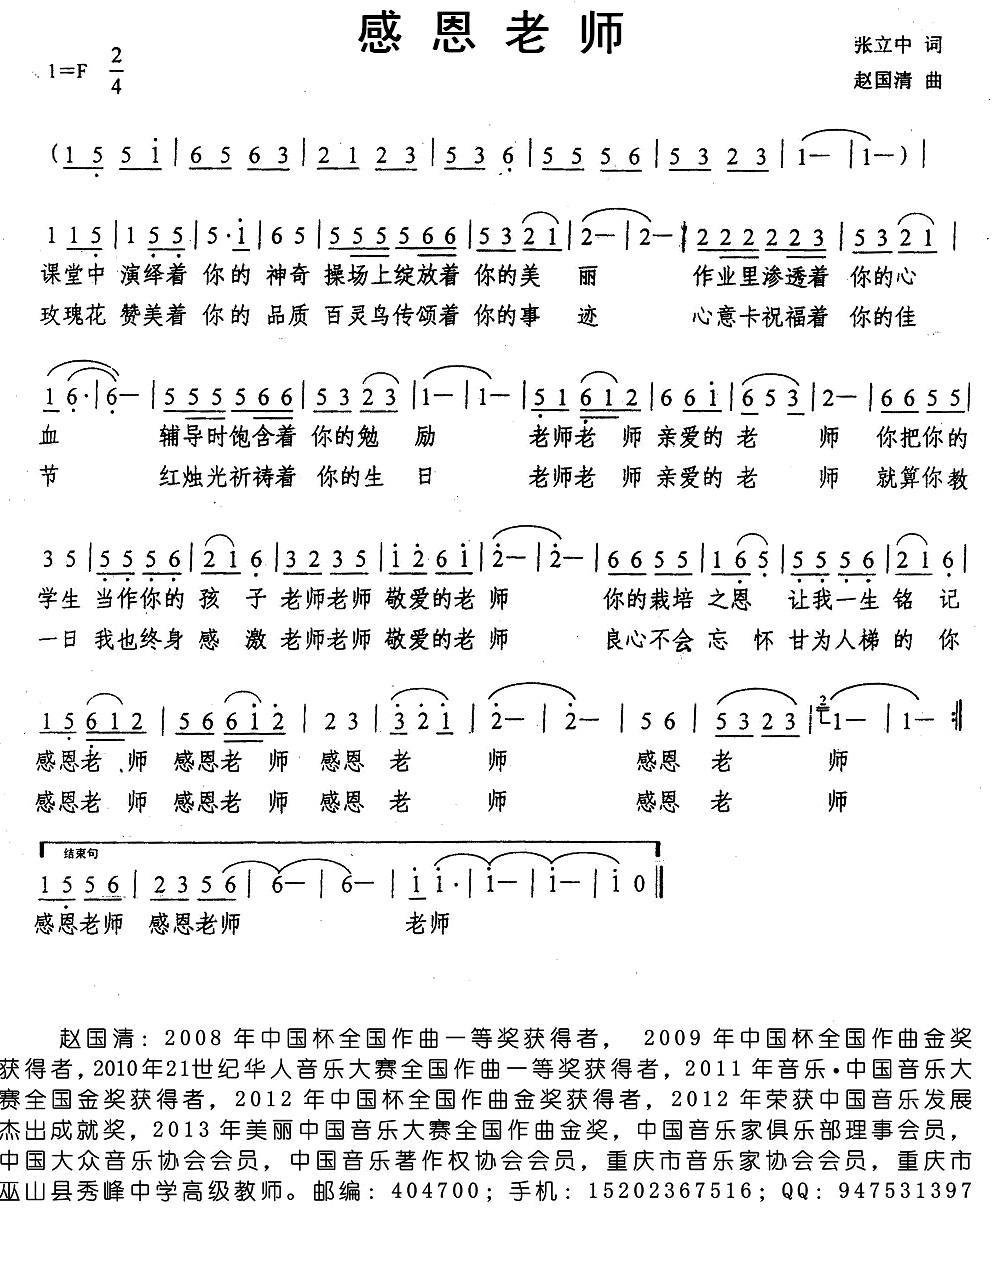 感恩老师
张立中 词
1=F 2/4
赵国清 曲
(1 5 5 i | 6 5 6 3 | 2 1 2 3 | 5 3 6 | 5 5 5 6 | 5 3 2 3 | 1— | 1—) |
1 1 5 | 1 5 5 | 5· i | 6 5 | 5 5 5 5 6 6 | 5 3 2 1 | 2— | 2— | 2 2 2 2 2 3 | 5 3 2 1 |
课堂中 演绎着 你的 神奇 操场上绽放着 你的美 丽 作业里渗透着 你的心
玫瑰花 赞美着 你的 品质 百灵鸟传颂着 你的事 迹 心意卡祝福着 你的佳
1 6· | 6— | 5 5 5 5 6 6 | 5 3 2 3 | 1— | 1— | 5 1 6 1 2 | 6 6 i | 6 5 3 | 2— | 6 6 5 5 |
血 辅导时饱含着 你的勉 励 老师老 师 亲爱的 老 师 你把你的
节 红烛光祈祷着 你的生 日 老师老 师 亲爱的 老 师 就算你教
3 5 | 5 5 5 6 | 2 1 6 | 3 2 3 5 | i 2 6 i | 2— | 2— | 6 6 5 5 | 1 6 5 | 5 5 5 6 | 2 1 6 |
学生 当作你的 孩 子 老师老师 敬爱的老 师 你的栽培 之恩 让我一生 铭 记
一日 我也终身 感 激 老师老师 敬爱的老 师 良心不会 忘 怀 甘为人梯 的 你
1 5 6 1 2 | 5 6 6 i 2 | 2 3 | 3 2 i | 2— | 2— | 5 6 | 5 3 2 3 | 2 1— | 1— :‖
感恩老 师 感恩老 师 感恩 老 师 感恩 老 师
感恩老 师 感恩老 师 感恩 老 师 感恩 老 师
结束句
1 5 5 6 | 2 3 5 6 | 6— | 6— | i i· | i— | i— | i 0 ‖
感恩老师 感恩老师 老师
赵国清：2008年中国杯全国作曲一等奖获得者， 2009年中国杯全国作曲金奖
获得者，2010年21世纪华人音乐大赛全国作曲一等奖获得者，2011年音乐·中国音乐大
赛全国金奖获得者，2012年中国杯全国作曲金奖获得者，2012年荣获中国音乐发展
杰出成就奖，2013年美丽中国音乐大赛全国作曲金奖，中国音乐家俱乐部理事会员，
中国大众音乐协会会员，中国音乐著作权协会会员，重庆市音乐家协会会员，重庆市
巫山县秀峰中学高级教师。邮编：404700；手机：15202367516；QQ：947531397